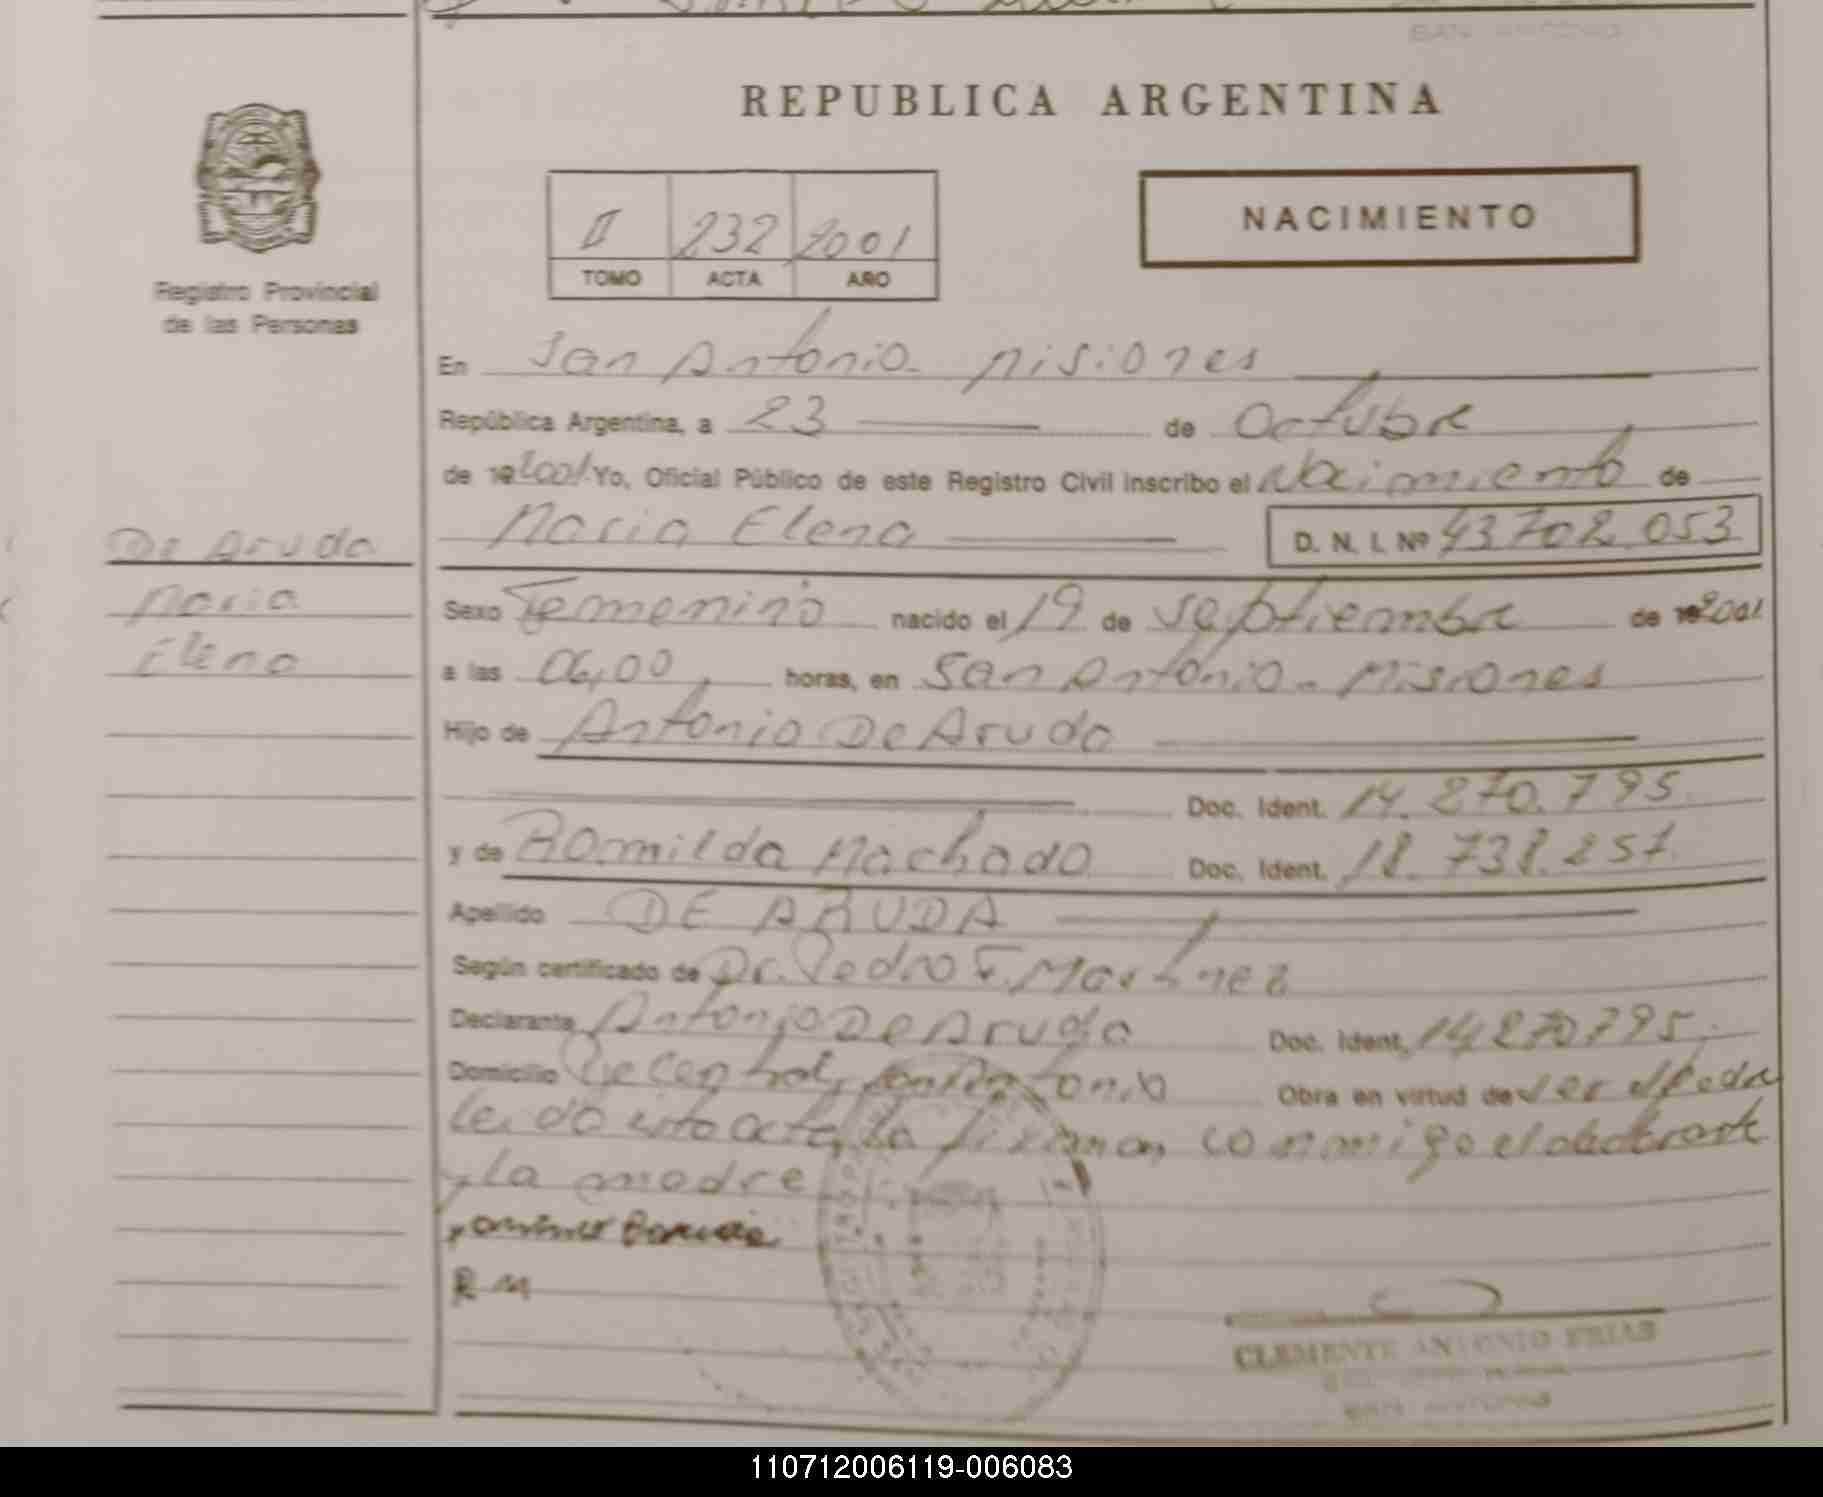 REPUBLICA ARGENTINA
II 232 2001
TOMO ACTA AÑO
NACIMIENTO
Registro Provincial
de las Personas
En San Antonio - Misiones
República Argentina, a 23 de Octubre
de 19 2001 Yo, Oficial Público de este Registro Civil inscribo el Nacimiento de
Maria Elena D. N. I. Nº 43702053
De Aruda
Maria
Elena
Sexo Femenino nacido el 19 de Septiembre de 19 2001
a las 06,00 horas, en San Antonio - Misiones
Hijo de Antonio De Aruda
Doc. Ident. 14.270.795
y de Romilda Machado Doc. Ident. 18.738.257
Apellido DE ARUDA
Según certificado de Dr. Pedro F. Martinez
Declarante Antonio De Aruda Doc. Ident. 14270795
Domicilio San Antonio Obra en virtud de
Leida esta acta, la firman conmigo el declarante
y La madre
R M
CLEMENTE ANTONIO FRIAS
SAN ANTONIO
110712006119-006083